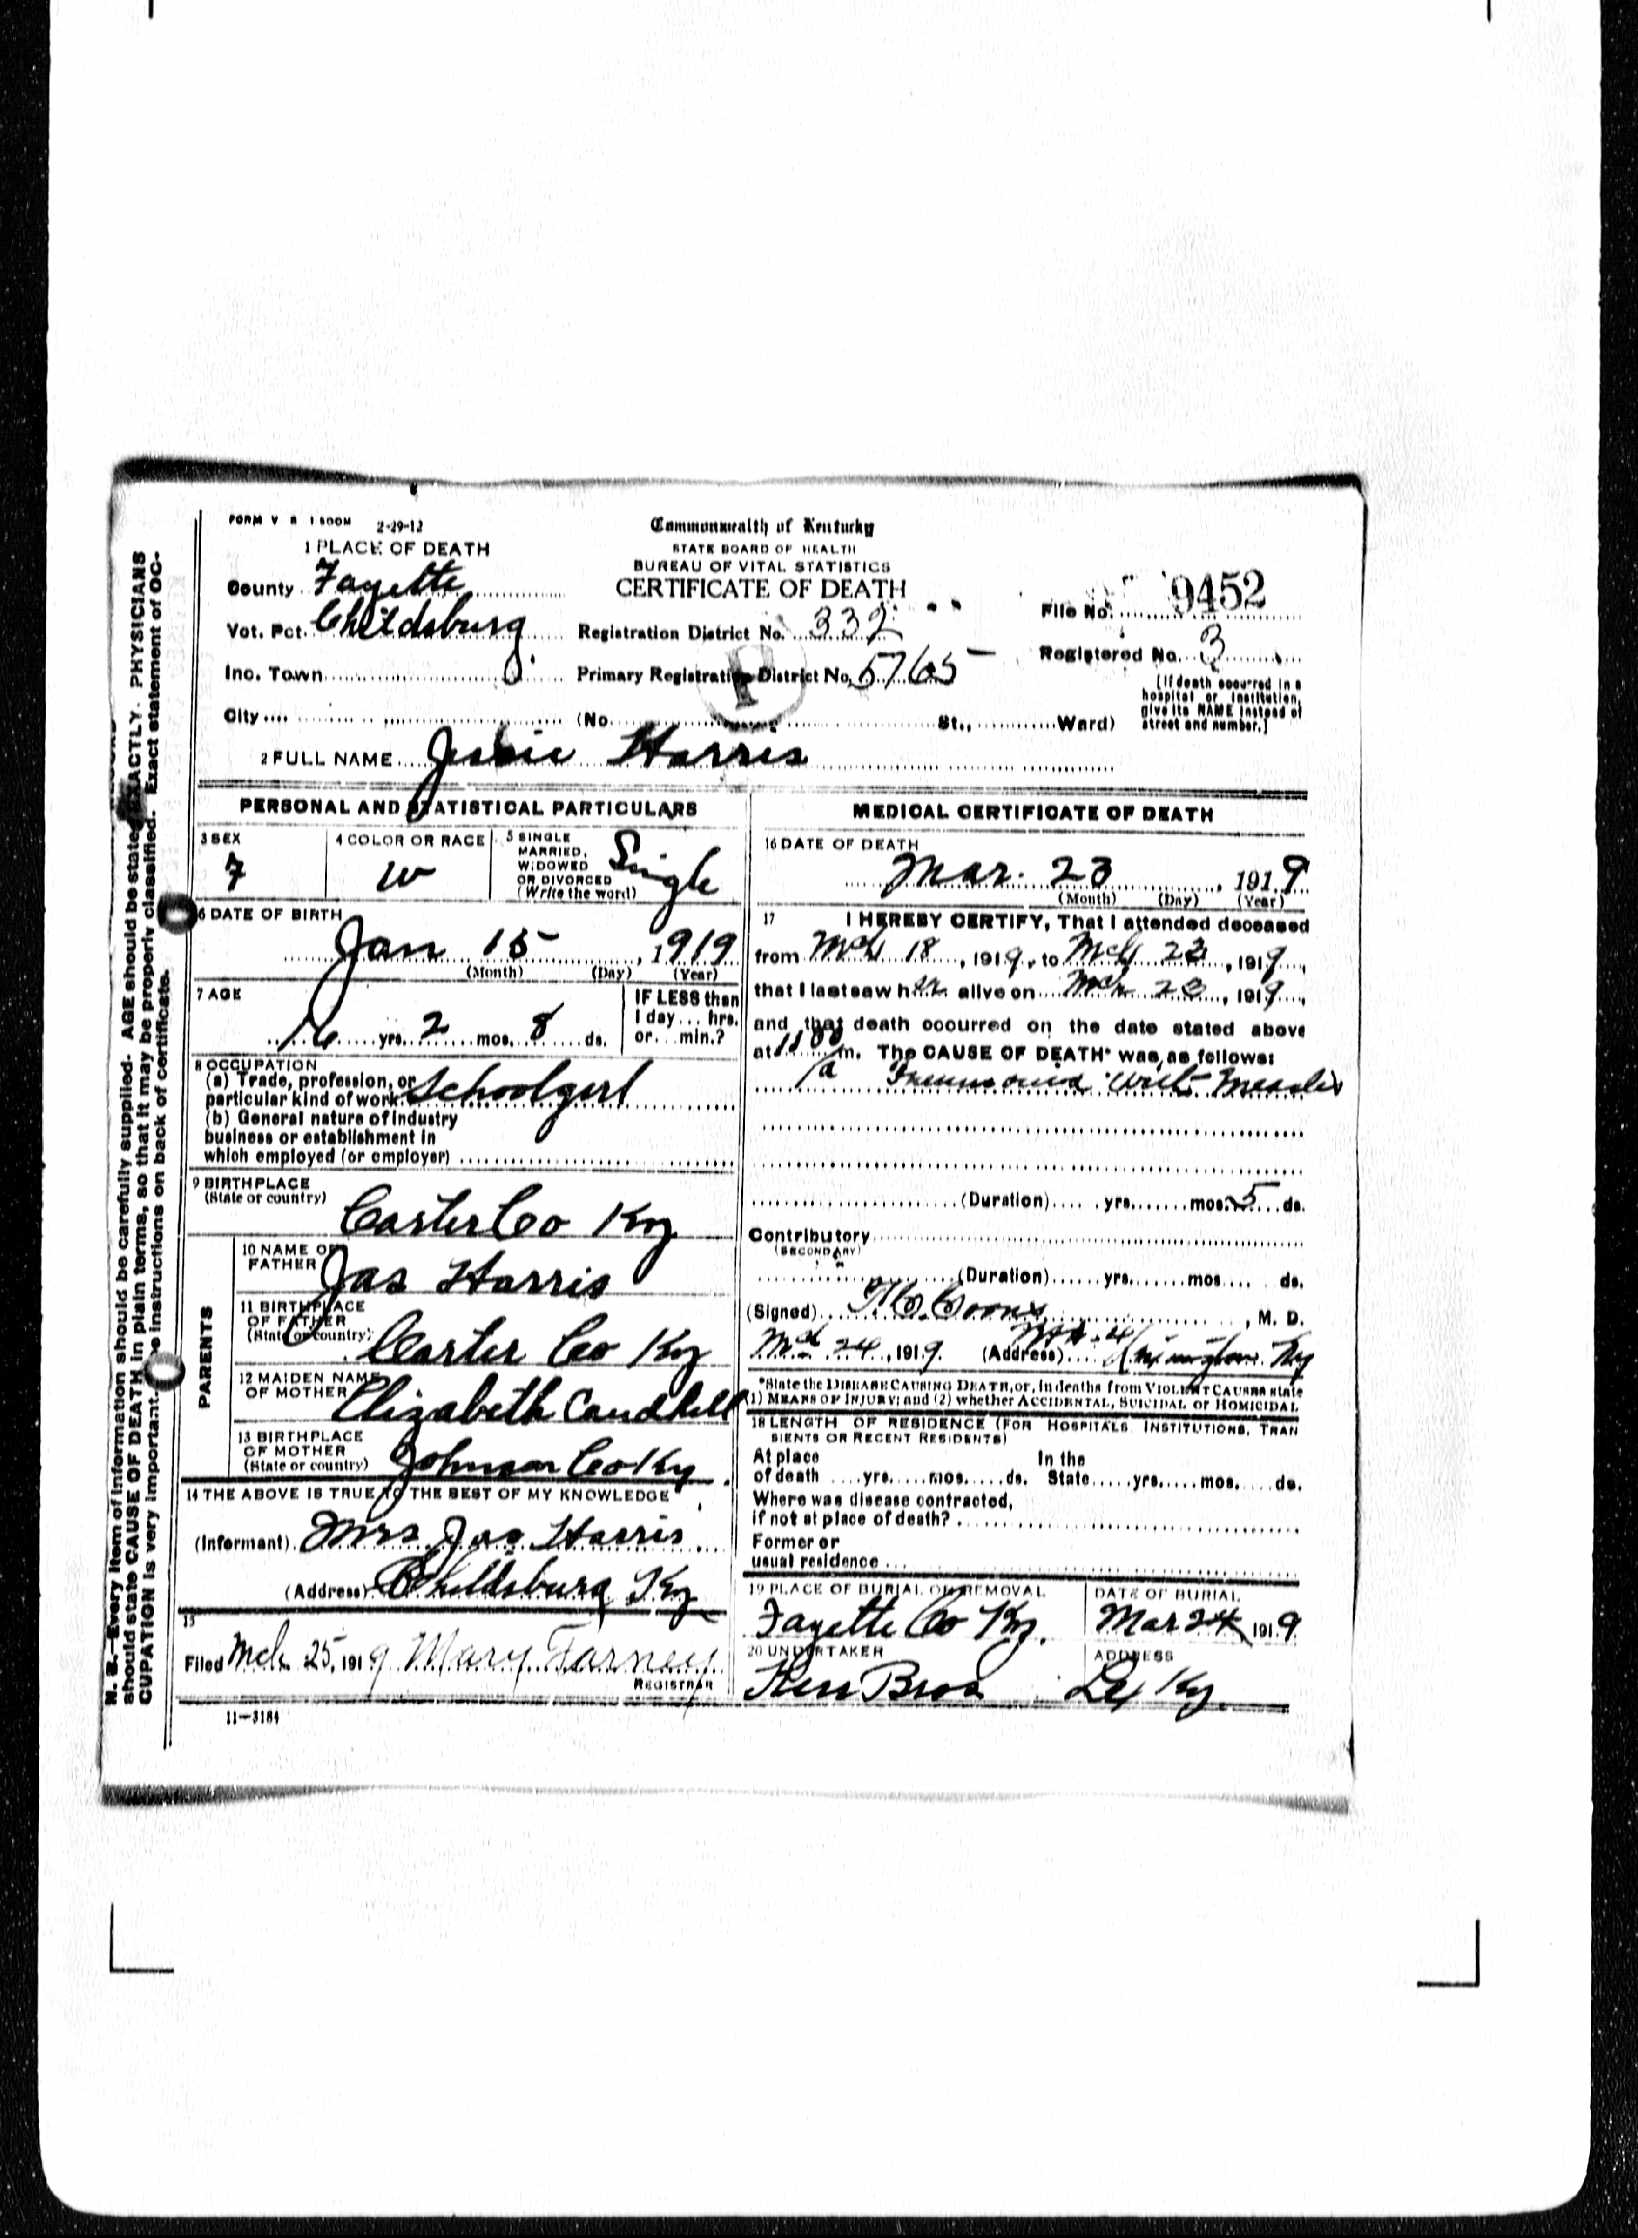 FORM V S 1 500M 2-29-12
Commonwealth of Kentucky
STATE BOARD OF HEALTH
BUREAU OF VITAL STATISTICS
CERTIFICATE OF DEATH
1 PLACE OF DEATH
County Fayette
Vot. Pct. Childsburg
Inc. Town
City
Registration District No. 332
Primary Registration District No. 5765
(No. St., Ward)
File No. 9452
Registered No. 3
[If death occurred in a
hospital or institution,
give its NAME instead of
street and number.]
2 FULL NAME Jessie Harris
PERSONAL AND STATISTICAL PARTICULARS
3 SEX
F
4 COLOR OR RACE
W
5 SINGLE
MARRIED,
WIDOWED
OR DIVORCED
(Write the word)
Single
6 DATE OF BIRTH
Jan 15, 1919
(Month) (Day) (Year)
7 AGE
16 yrs. 2 mos. 8 ds.
IF LESS than
1 day... hrs.
or... min.?
8 OCCUPATION
(a) Trade, profession, or
particular kind of work Schoolgirl
(b) General nature of Industry
business or establishment in
which employed (or employer)
9 BIRTHPLACE
(State or country)
Carter Co Ky
PARENTS
10 NAME OF
FATHER
Jas Harris
11 BIRTHPLACE
OF FATHER
(State or country)
Carter Co Ky
12 MAIDEN NAME
OF MOTHER
Elizabeth Caudhill
13 BIRTHPLACE
OF MOTHER
(State or country)
Johnson Co Ky
14 THE ABOVE IS TRUE TO THE BEST OF MY KNOWLEDGE
(Informant) Mrs Jas Harris
(Address) Childsburg Ky
15
Filed Mch 25, 1919 Mary Farney
REGISTRAR
11-3184
MEDICAL CERTIFICATE OF DEATH
16 DATE OF DEATH
Mar. 23, 1919
(Month) (Day) (Year)
17 I HEREBY CERTIFY, That I attended deceased
from Mch 18, 1919, to Mch 23, 1919,
that I last saw her alive on Mch 23, 1919,
and that death occurred on the date stated above
at m. The CAUSE OF DEATH* was as follows:
Pneumonia with Measles
(Duration) yrs. mos. 5 ds.
Contributory
(SECONDARY)
(Duration) yrs. mos. ds.
(Signed) Coons, M. D.
24, 1919. (Address) Lexington Ky
*State the DISEASE CAUSING DEATH, or, in deaths from VIOLENT CAUSES state
1) MEANS OF INJURY; and (2) whether ACCIDENTAL, SUICIDAL or HOMICIDAL
18 LENGTH OF RESIDENCE (FOR HOSPITALS INSTITUTIONS, TRAN
SIENTS OR RECENT RESIDENTS)
At place In the
of death yrs. mos. ds. State yrs. mos. ds.
Where was disease contracted,
if not at place of death?
Former or
usual residence
19 PLACE OF BURIAL OR REMOVAL
Fayette Co Ky.
DATE OF BURIAL
Mar 24, 1919
20 UNDERTAKER
Kerr Bros
ADDRESS
Lex Ky.
N. B.—Every item of information should be carefully supplied. AGE should be stated EXACTLY. PHYSICIANS
should state CAUSE OF DEATH in plain terms, so that it may be properly classified. Exact statement of OC-
CUPATION is very important. instructions on back of certificate.